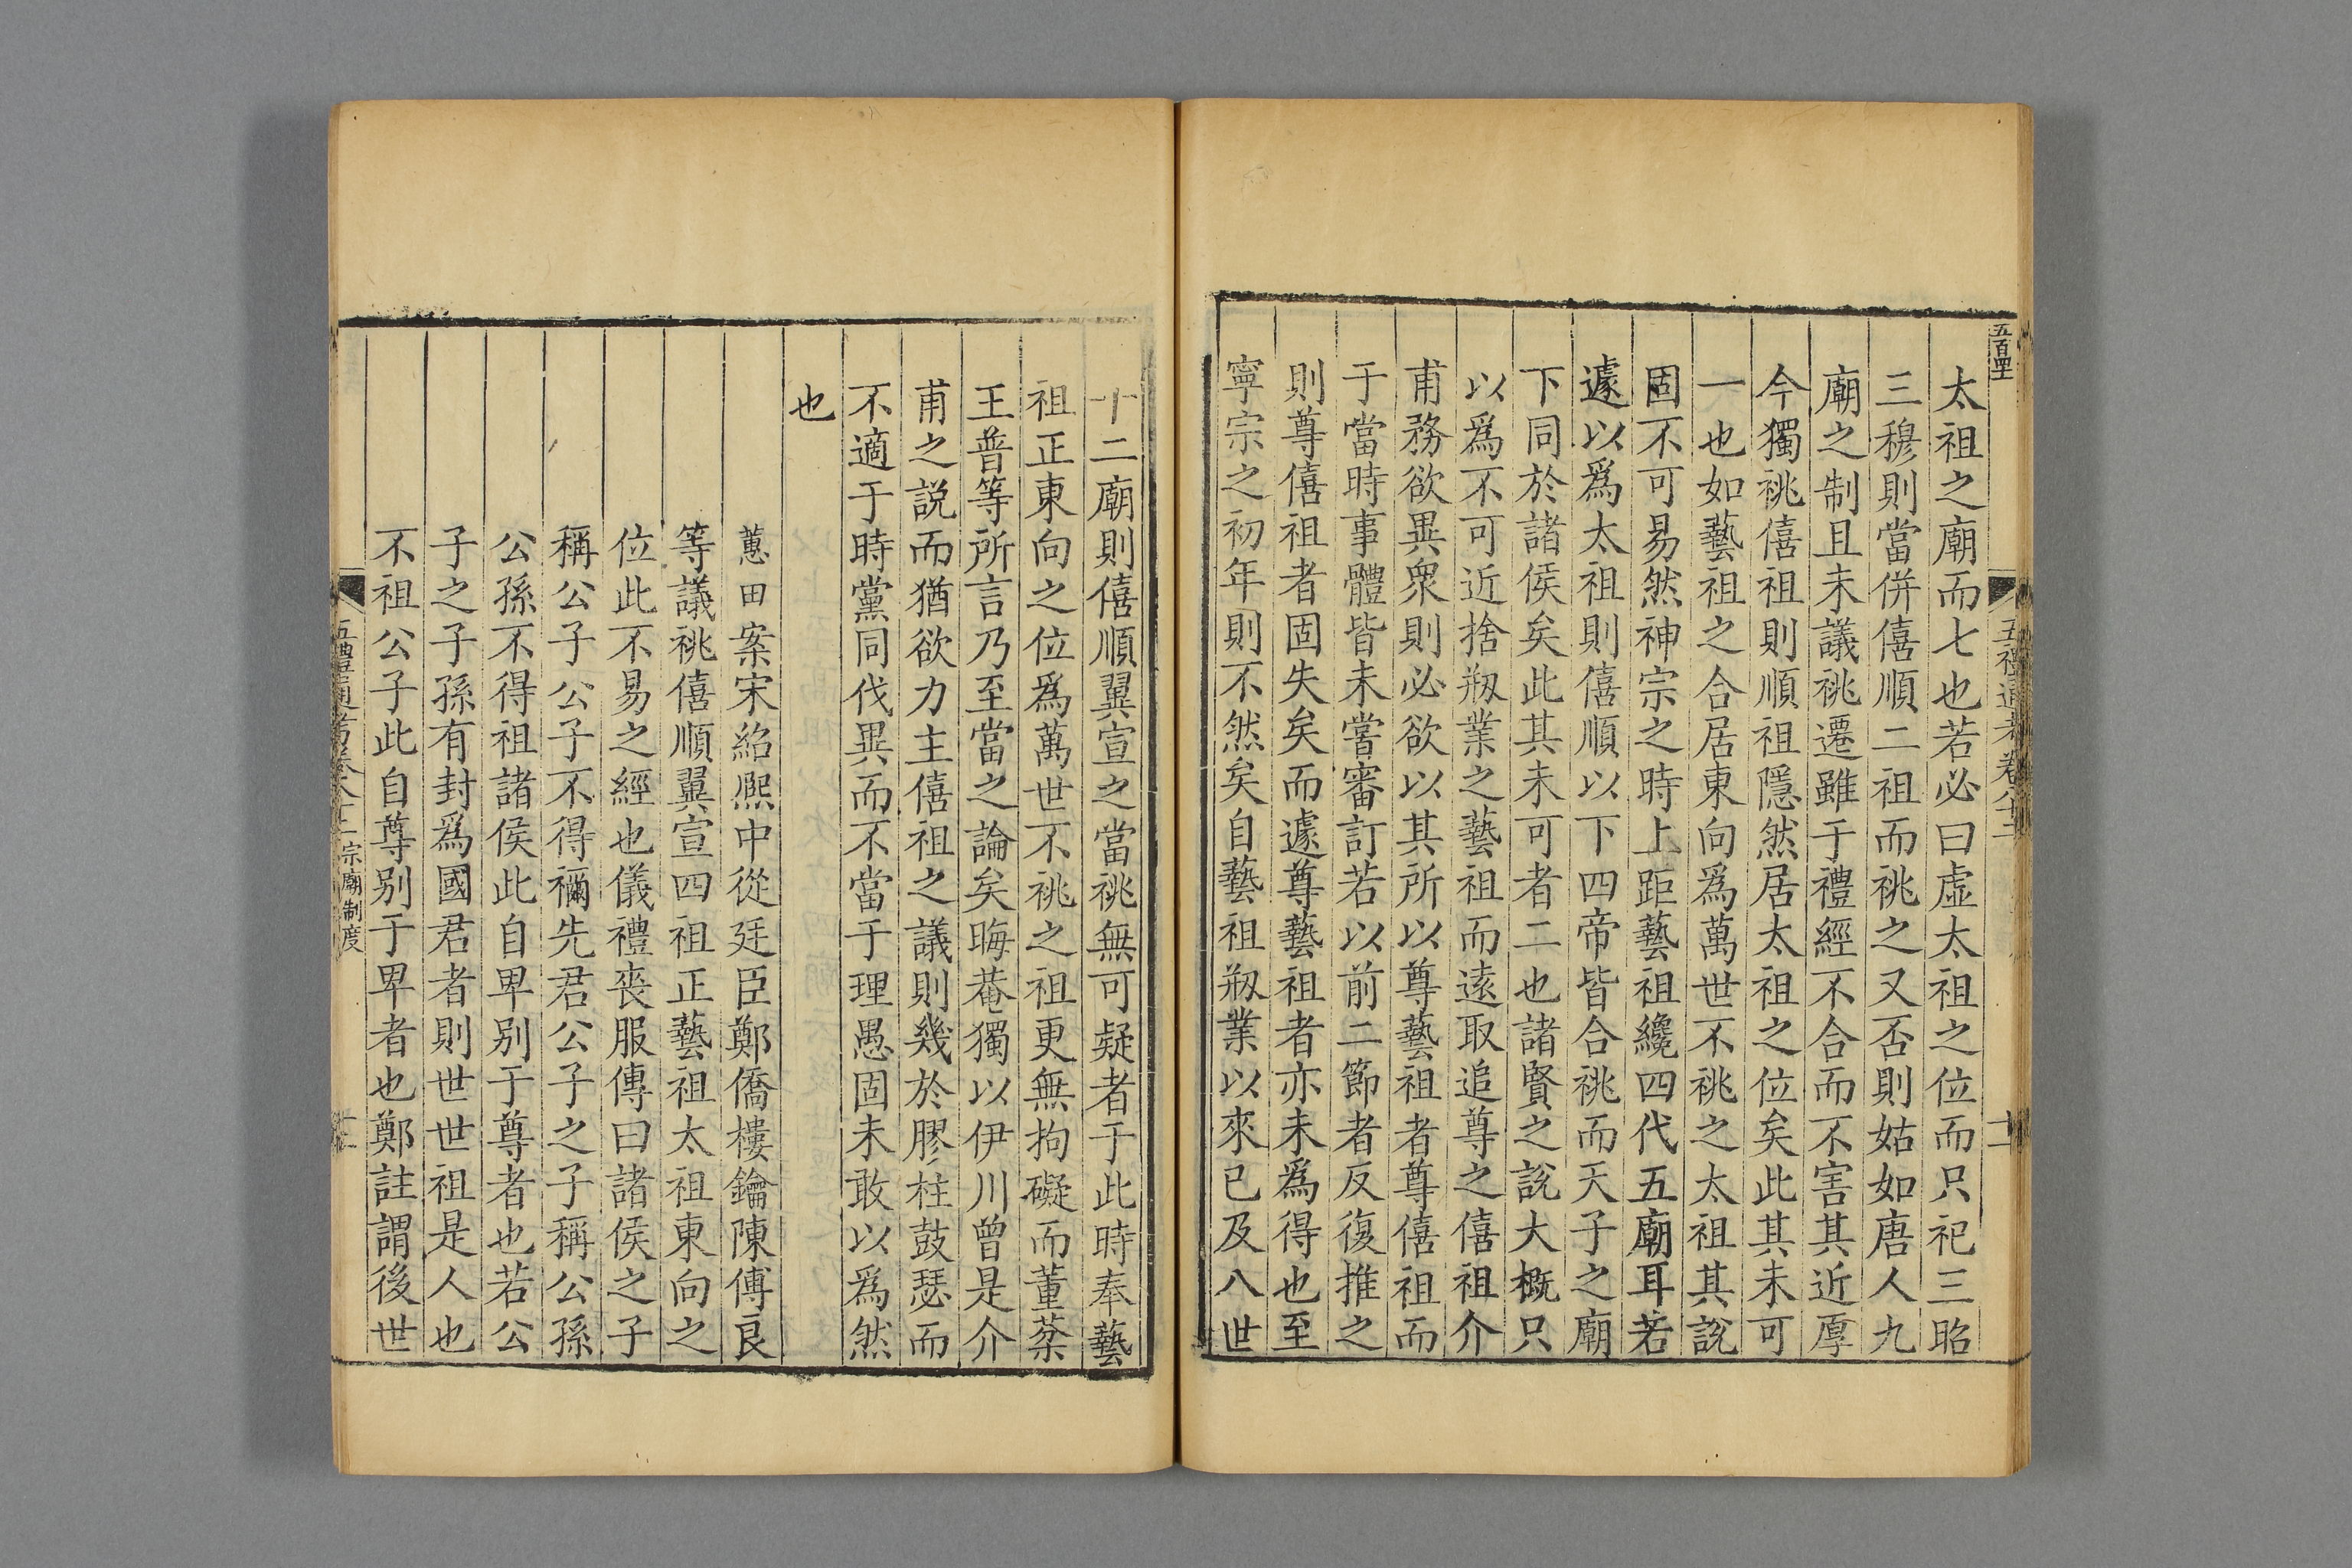 太祖之廟而七也若必曰虛太祖之位而只祀三昭
三穆則當併僖順二祖而祧之又否則姑如唐人九
廟之制且未議祧遷雖于禮經不合而不害其近厚
今獨祧僖祖則順祖隱然居太祖之位矣此其未可
一也如藝祖之合居東向爲萬世不祧之太祖其說
固不可易然神宗之時上距藝祖纔四代五廟耳若
遽以爲太祖則僖順以下四帝皆合祧而天子之廟
下同於諸侯矣此其未可者二也諸賢之說大概只
以爲不可近捨剏業之藝祖而遠取追尊之僖祖介
甫務欲異衆則必欲以其所以尊藝祖者尊僖祖而
于當時事體皆未嘗審訂若以前二節者反復推之
則尊僖祖者固失矣而遽尊藝祖者亦未爲得也至
寧宗之初年則不然矣自藝祖剏業以來已及八世
十二廟則僖順翼宣之當祧無可疑者于此時奉藝
祖正東向之位爲萬世不祧之祖更無拘礙而董棻
王普等所言乃至當之論矣晦菴獨以伊川曾是介
甫之説而猶欲力主僖祖之議則幾於膠柱鼓瑟而
不適于時黨同伐異而不當于理愚固未敢以爲然
也
蕙田案宋紹熙中從廷臣鄭僑樓鑰陳傅良
等議祧僖順翼宣四祖正藝祖太祖東向之
位此不易之經也儀禮喪服傳曰諸侯之子
稱公子公子不得禰先君公子之子稱公孫
公孫不得祖諸侯此自卑别于尊者也若公
子之子孫有封爲國君者則世世祖是人也
不祖公子此自尊别于卑者也鄭註謂後世
五禮通考卷八十二 宗廟制度